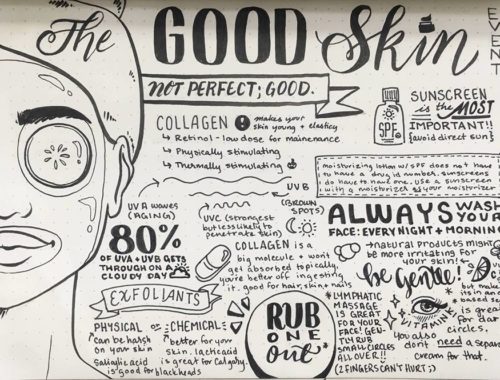 The GOOD Skin
EVENT
NOT PERFECT; GOOD.
COLLAGEN ! makes your
skin young + elasticy
↳ Retinol - low dose for mainenance
↳ Physically stimulating
↳ Thermally stimulating
SPF
SUNSCREEN
is the MOST
IMPORTANT!!
{avoid direct sun}
moisturizing lotion w/ SPF does not have
to have a drug id number. Sunscreens
do have to have one. Use a sunscreen
with a moisturizer as your moisturizer
UVA waves
(AGING)
UVB
(BROWN
SPOTS)
UVC (strongest
but less likely to
penetrate skin)
80%
OF UVA + UVB GETS
THROUGH ON A
CLOUDY DAY
COLLAGEN is a
big molecule + won't
get absorbed topically,
you're better off ingesting
it. good for hair, skin, nails
ALWAYS WASH
YOUR
FACE: EVERY NIGHT + MORNING
→ natural products might
be more irritating for
your skin!
be Gentle!
EXFOLIANTS
PHYSICAL or CHEMICAL:
↑ can be harsh
on your skin
better for your
skin. lactic acid
is great for Calgary.
Salicylic acid
is good for blackheads
RUB
ONE
out*
*LYMPHATIC
MASSAGE
IS GREAT
FOR YOUR
FACE! GEN-
TLY RUB
SMALL CIRCLES
ALL OVER!!
(2 FINGERS CAN'T HURT ;)
VITAMIN K
is great
for dark
circles,
You also
don't need a separate
cream for that.